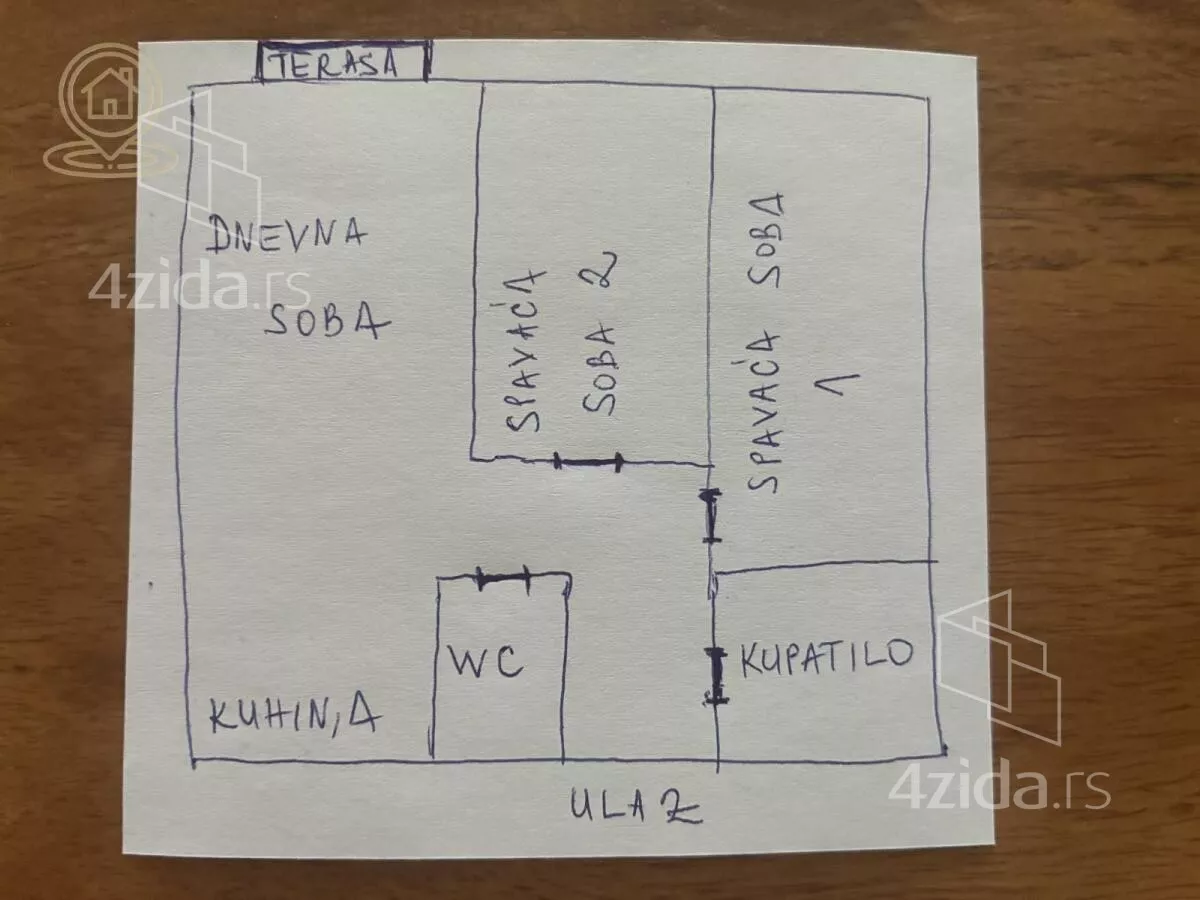 TERASA
DNEVNA
SOBA
SPAVAĆA
SOBA 2
SPAVAĆA SOBA
1
WC
KUPATILO
KUHINJA
ULAZ
4zida.rs
4zida.rs